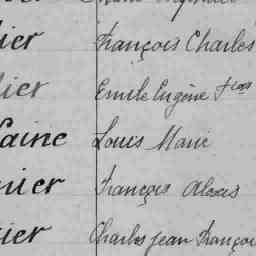 ier François Charles
lier Emile Eugène Fcois
aine Louis Marie
nier François Alexis
ier Charles Jean Françoi